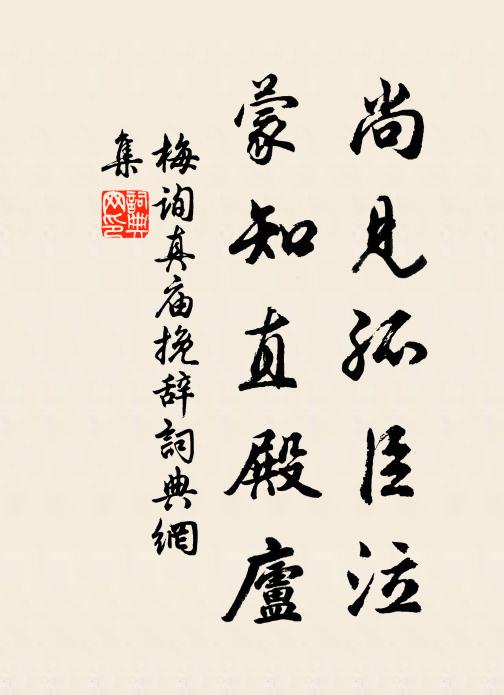 尚見孤臣泣
蒙知直殿廬
梅詢真庙挽辞詞典網
集
詞典網印